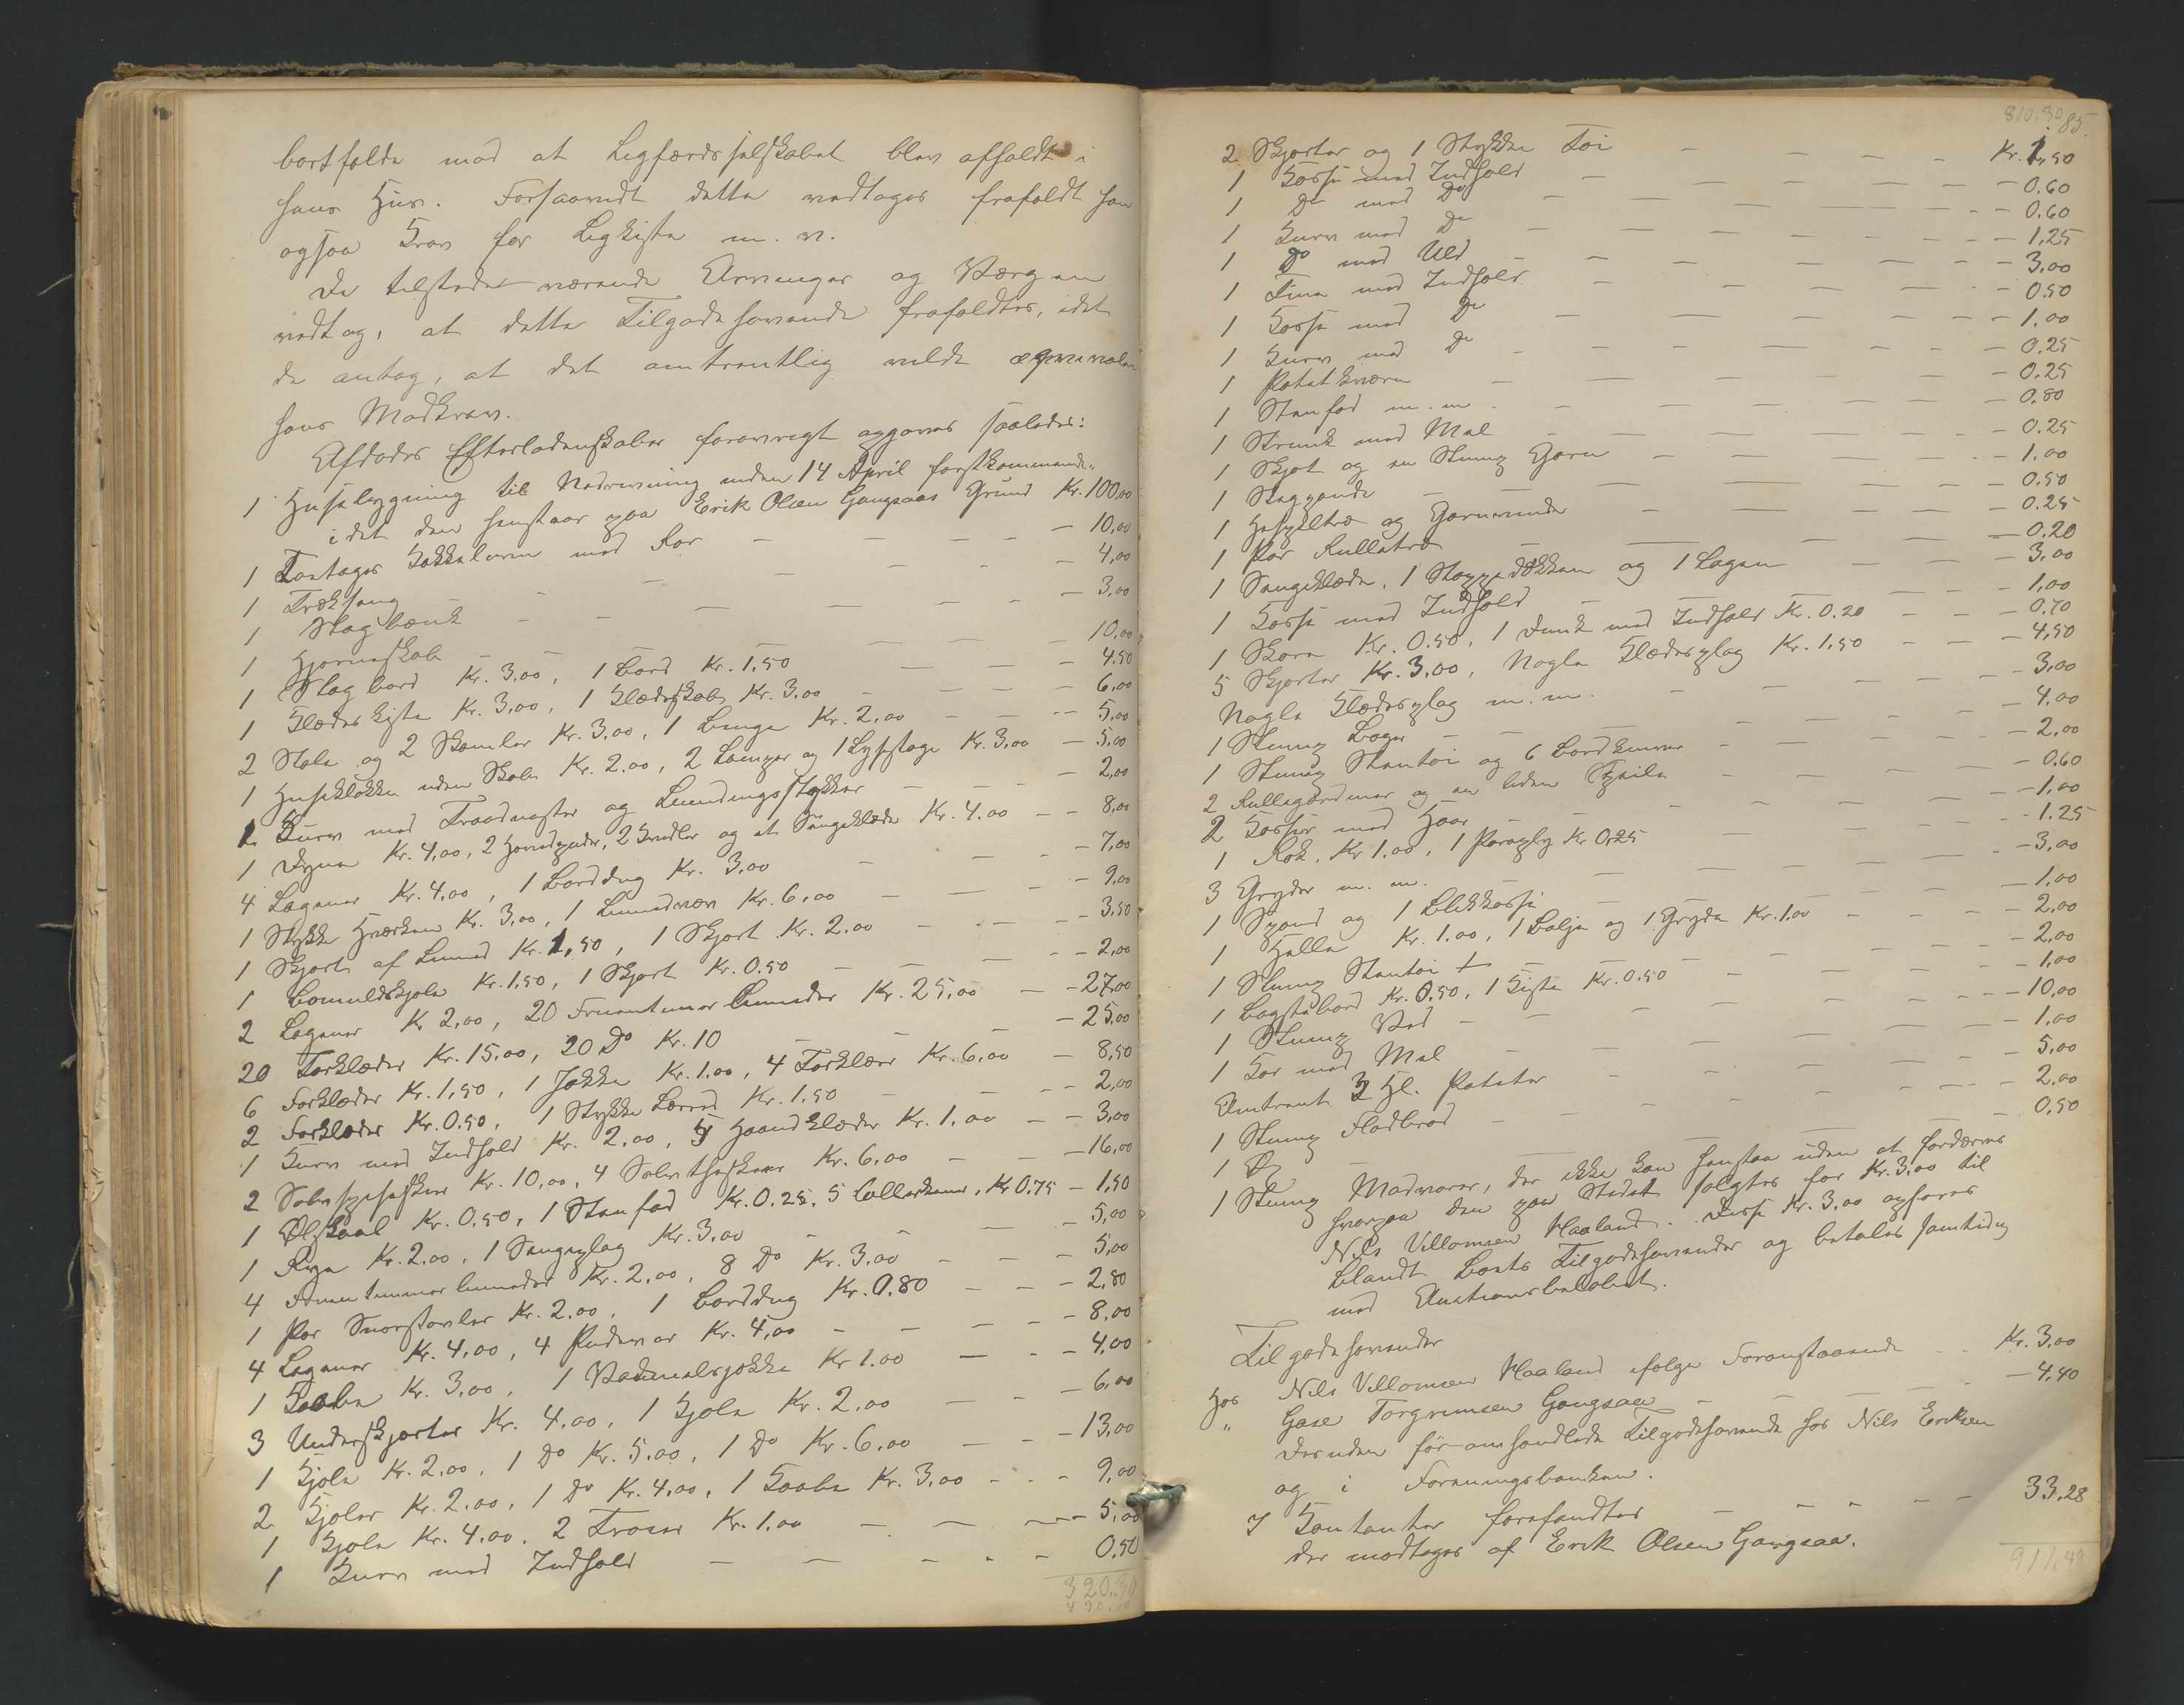 bortfaldt mod at Ligfærdsselskabet blev afholdt i
hans Hus. Forsaavidt dette vedtages frafaldt han
ogsaa Krav for Ligkiste m. v.
De tilstedeværende Arvinger og Værgen
vedtog, at dette Tilgodehavende frafaldtes, idet
de antog, at det omtrentlig vilde
hans Modkrav.
Afdødes Efterladenskaber forøvrigt opgaves saaledes:
1 Husebygning til Nedrivning inden 14 April førstkommende
idet den henstaar paa Erik Olsen Gangsaas Grund Kr. 100,00
1 Toetages Kakkelovn med Rør — 10,00
1 Træksæng — 4,00
1 Slagbænk — 3,00
1 Hjørneskab — 10,00
1 Slagbord Kr. 3,00, 1 Bord Kr. 1,50 — 4.50
1 Klædeskiste Kr. 3,00, 1 Klædeskab Kr. 3,00 — 6,00
2 Stole og 2 Skamler Kr. 3,00, 1 Kr. 2,00 — 5,00
1 Huseklokke uden Skab Kr. 2.00, 2 Lamper og 1 Lysestage Kr. 3,00 — 5,00
1 Kurv med Traadnøster og — 2,00
1 Dyne Kr. 4,00, 2 Hovedpuder, 2 og et Sengeklæde Kr. 4.00 — 8,00
4 Lagener Kr. 4,00, 1 Borddug Kr. 3,00 — 7,00
1 Stykke Kr. 3,00, 1 Kr. 6,00 — 9,00
1 Skjørt af Kr. 1,50, 1 Skjørt Kr. 2.00 — 3,50
1 Bomuldskjole Kr. 1,50, 1 Skjørt Kr. 0.50 — 2,00
2 Lagener Kr 2,00, 20 Fruentimmer Linneder Kr. 25,00 — 27,00
20 Tørklæder Kr. 15,00, 20 Do Kr. 10 — 25,00
6 Forklæder Kr. 1,50, 1 Jakke Kr. 1,00, 4 Forklær Kr. 6,00 — 8,50
2 Forklæder Kr. 0.50, 1 Stykke Lærred Kr. 1.50 — 2,00
1 Kurv med Indhold Kr. 2,00, Haandklæder Kr. 1,00 — 3,00
2 Sølvspiseskeer Kr. 10,00, 4 Sølvtheskeer Kr. 6,00 — 16,00
1 Ølskaal Kr. 0,50, 1 Stenfad Kr. 0.25, 5 Kr 0.75 — 1,50
1 Rye Kr. 2.00, 1 Sengeplag Kr. 3,00 — 5,00
4 Fruentimmerlinneder Kr. 2,00, 8 Do Kr. 3,00 — 5,00
1 Par Snørstøvler Kr. 2.00, 1 Borddug Kr. 0.80 — 2,80
4 Lagener Kr. 4,00, 4 Pudevar Kr. 4,00 — 8,00
1 Kaabe Kr. 3,00, 1 Vadmelsjakke Kr 1.00 — 4,00
3 Underskjørter Kr. 4.00, 1 Kjole Kr. 2.00 — 6,00
1 Kjole Kr. 2.00, 1 Do Kr. 5.00, 1 Do Kr. 6,00 — 13,00
2 Kjoler Kr. 2.00, 1 Do Kr. 4,00, 1 Kaabe Kr. 3,00 — 9,00
1 Kjole Kr. 4.00, 2 Kr. 1,00 — 5,00
1 Kurv med Indhold — 0,50
320.30
490.00
810.30 85.
2 Skjorter og 1 Stykke Tøi — Kr. 1,50
1 Kasse med Indhold — 0.60
1 Do med Do — 0.60
1 Kurv med Do — 1,25
1 Do med Uld — 3,00
1 Tine med Indhold — 0,50
1 Kasse med Do — 1,00
1 Kurv med Do — 0.25
1 Potetkværn — 0.25
1 Stenfad m. m. — 0.80
1 Strunk med Mel — 0.25
1 Skjøt og en Slump Garn — 1.00
1 Stegpande — 0.50
1 Haspeltræ og Garnvinde — 0.25
1 Par Rulletræ — 0.20
1 Sengeklæde, 1 Stoppedækken og 1 Lagen — 3,00
1 Kasse med Indhold — 1,00
1 Kr. 0.50, 1 Dunk med Indhold Kr. 0.20 — 0.70
5 Skjorter Kr. 3,00, Nogle Klædesplag Kr. 1.50 — 4,50
Nogle Klædesplag m. m. — 3,00
1 Slump Bøger — 4,00
1 Slump Stentøi og 6 Bordknive — 2,00
2 Rullegardiner og en liden Speile — 0.60
2 Kasser med Haar — 1,00
1 Rok, Kr 1.00, 1 Paraply Kr 0,25 — 1.25
3 Gryder m. m. — 3,00
1 Spand og 1 Blikkasse — 1,00
1 Helle Kr. 1.00, 1 Balje og 1 Gryde Kr. 1.00 — 2,00
1 Slump Stentøi — 2,00
1 Bagstebord Kr. 0,50, 1 Kiste Kr. 0.50 — 1,00
1 Slump Ved — 10,00
1 Kar med Mel — 1,00
Omtrent 2 Hl. Poteter — 5,00
1 Slump Fladbrød — 2,00
1 — 0,50
1 Slump Madvarer, der ikke kan henstaa uden at fordærves
hvorpaa den paa Stedet solgtes for Kr. 3,00 til
Nils Villomsen Haaland. Disse Kr. 3.00 opføres
blandt Boets Tilgodehavender og betales samtidig
med Auktionsbeløbet.
Tilgodehavender
hos Nils Villomsen Haaland ifølge Foranstaaende — Kr. 3,00
" Gase Torgrimsen Gangsaa — 4.40
Desuden før omhandlede Tilgodehavende hos Nils Eriksen
og i Foreningsbanken.
I Kontanter forefandtes — 33,28
der modtages af Erik Olsen Gangsaa.
911,43